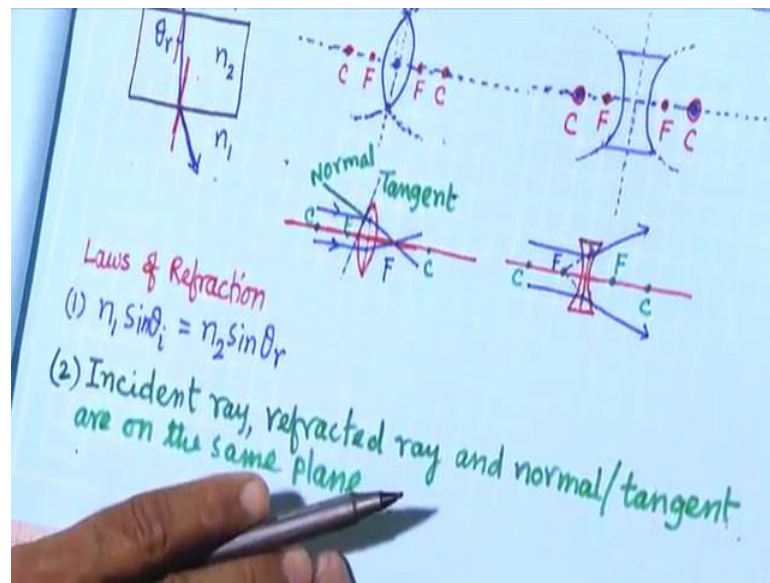 θr
n₂
n₁
C F F C
C F F C
Normal
Tangent
C F F C
C F F C
Laws of Refraction
(1) n₁ sinθi = n₂ sinθr
(2) Incident ray, refracted ray and normal/tangent
are on the same plane